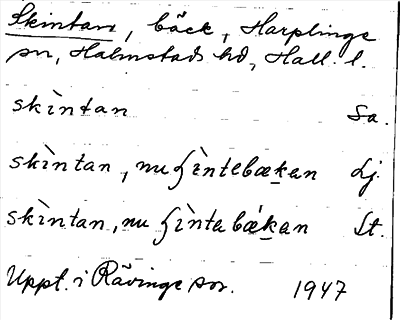 Skintan, bäck, Harplinge
sn, Halmstads hd, Hall. l.
skìntan Sa.
skìntan, nu ʃìntebækan Lj.
skìntan, nu ʃìntabækan St.
Uppt. i Rävinge sn. 1947